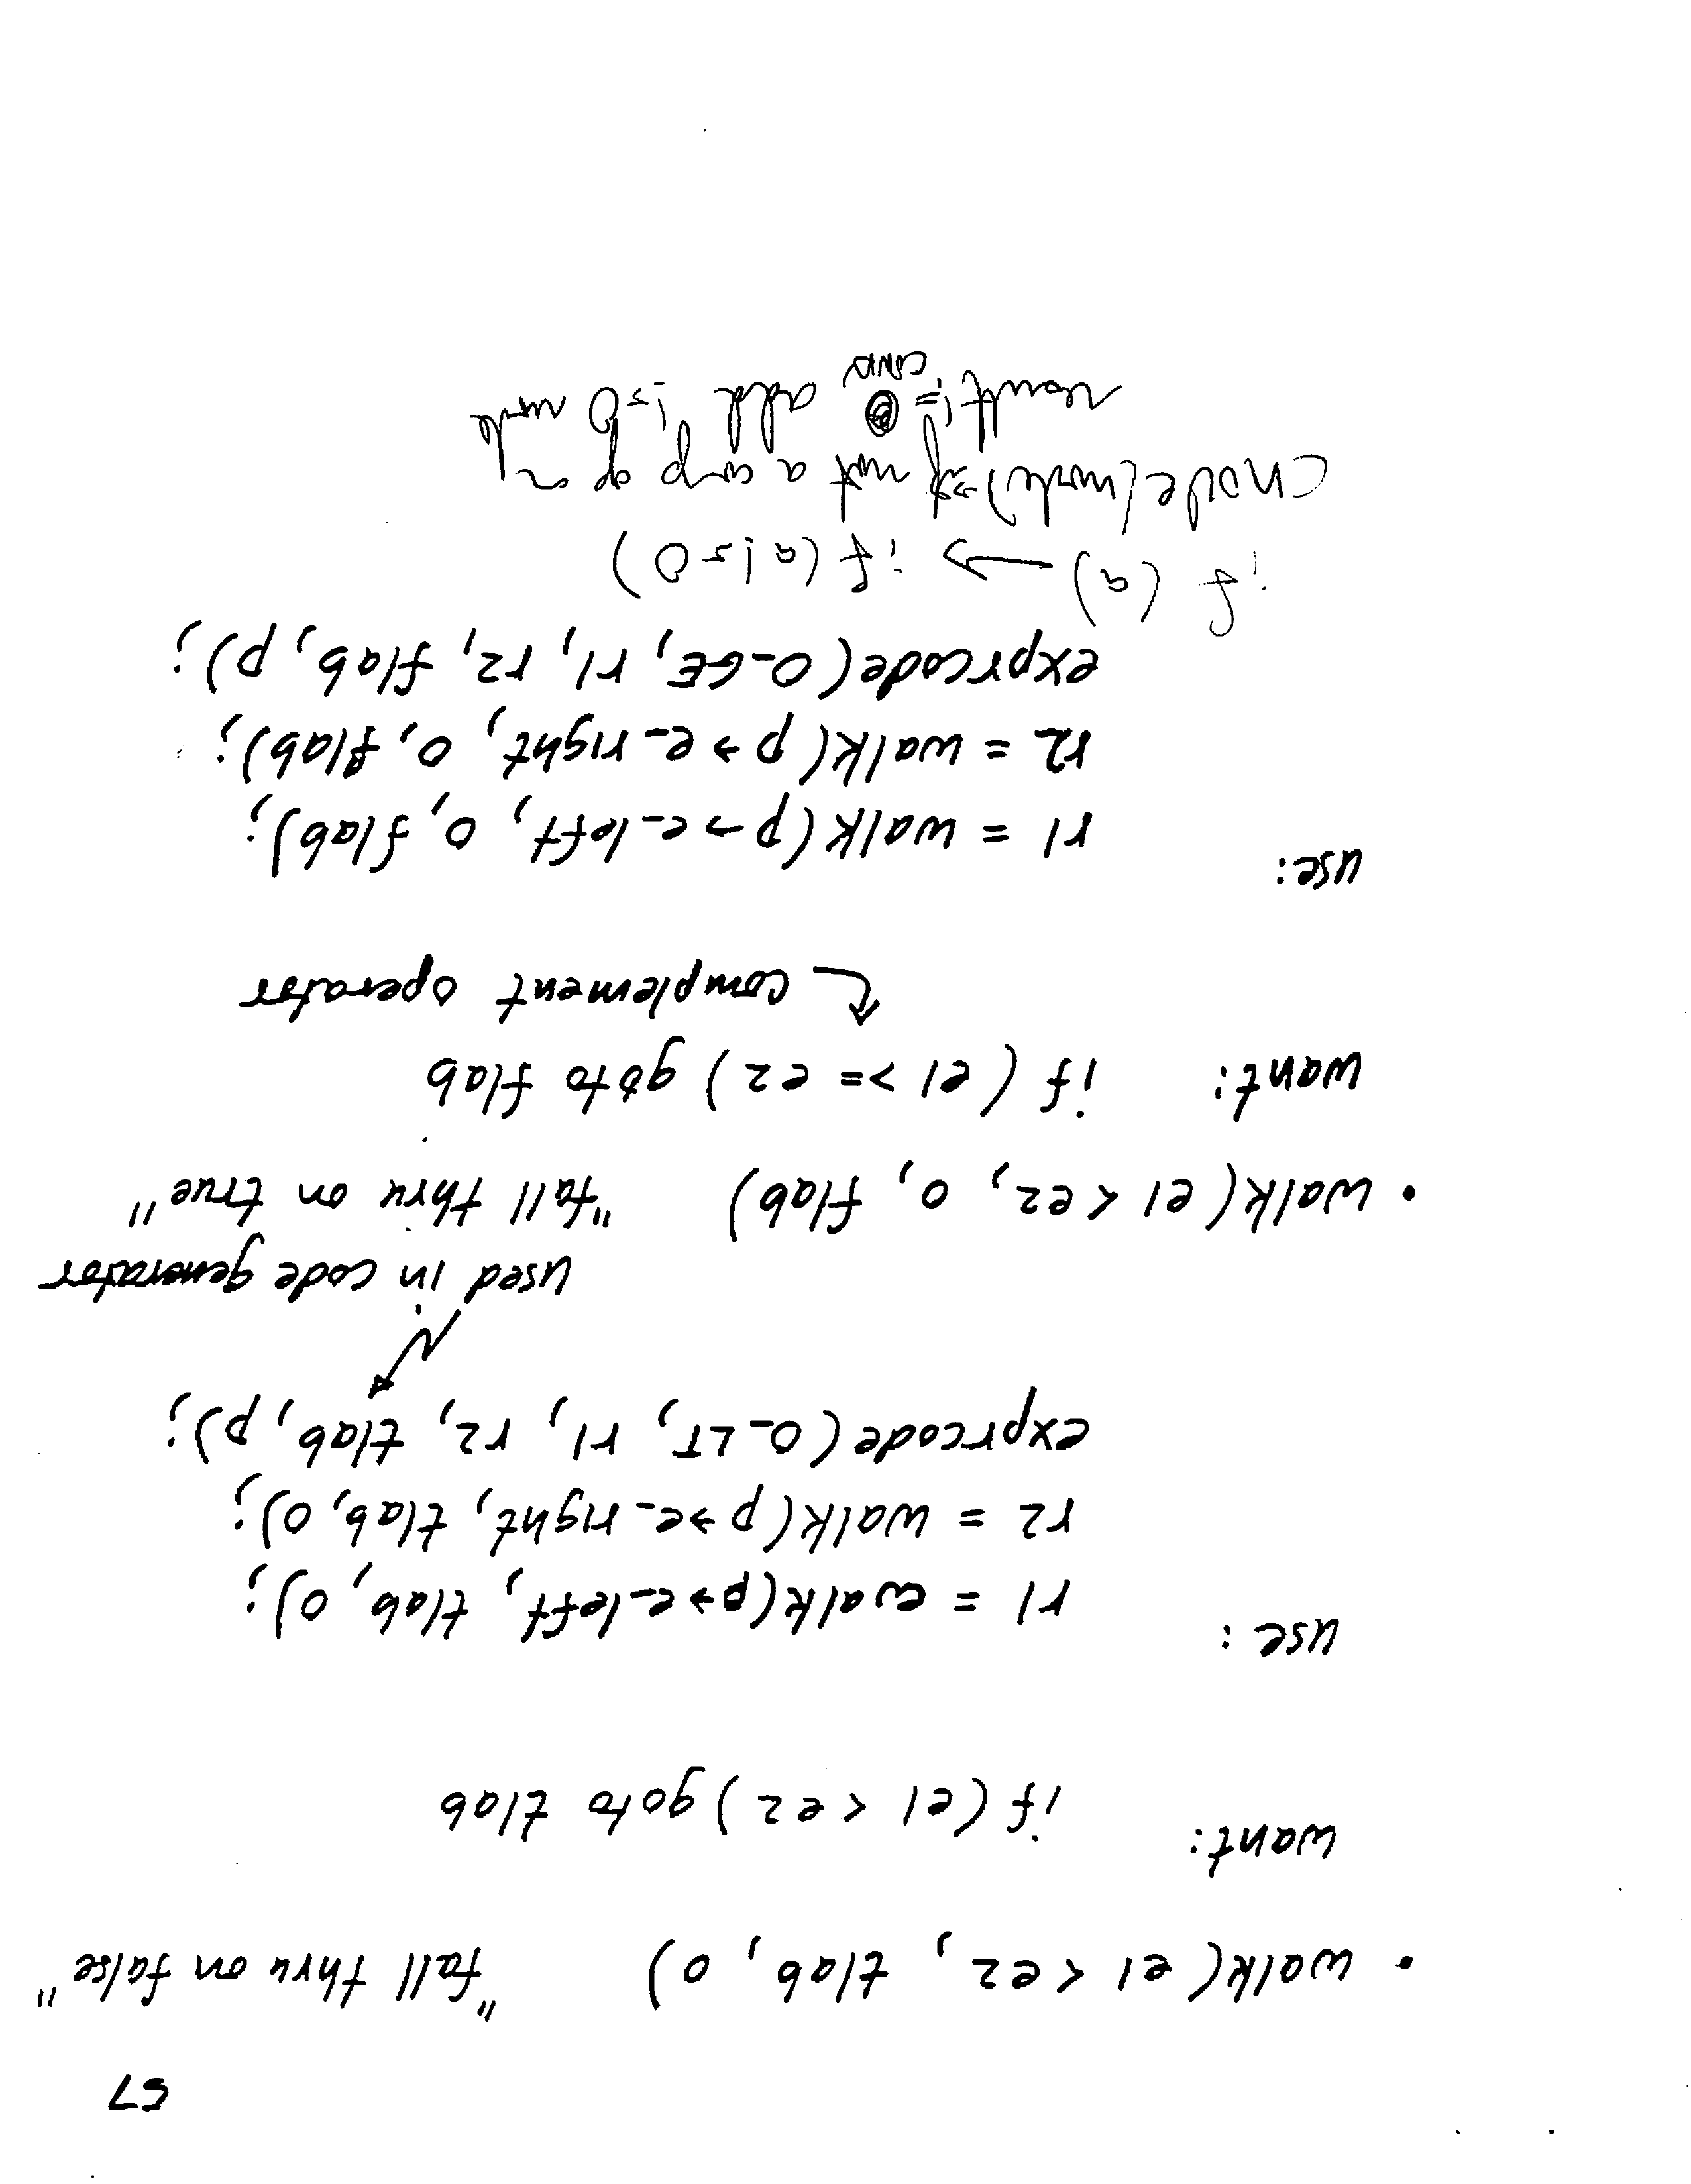 57
• walk(e1 < e2, tlab, 0) "fall thru on false"
want: if (e1 < e2) goto tlab
use: r1 = walk(p→e_left, tlab, 0);
r2 = walk(p→e_right, tlab, 0);
exprcode(O_LT, r1, r2, tlab, p);
used in code generator
• walk(e1 < e2, 0, flab) "fall thru on true"
want: if (e1 >= e2) goto flab
complement operator
use: r1 = walk(p→e_left, 0, flab);
r2 = walk(p→e_right, 0, flab);
exprcode(O_GE, r1, r2, flab, p);
if (a) → if (a != 0)
cnode(node) → if not a comp op or
!= add != 0 node